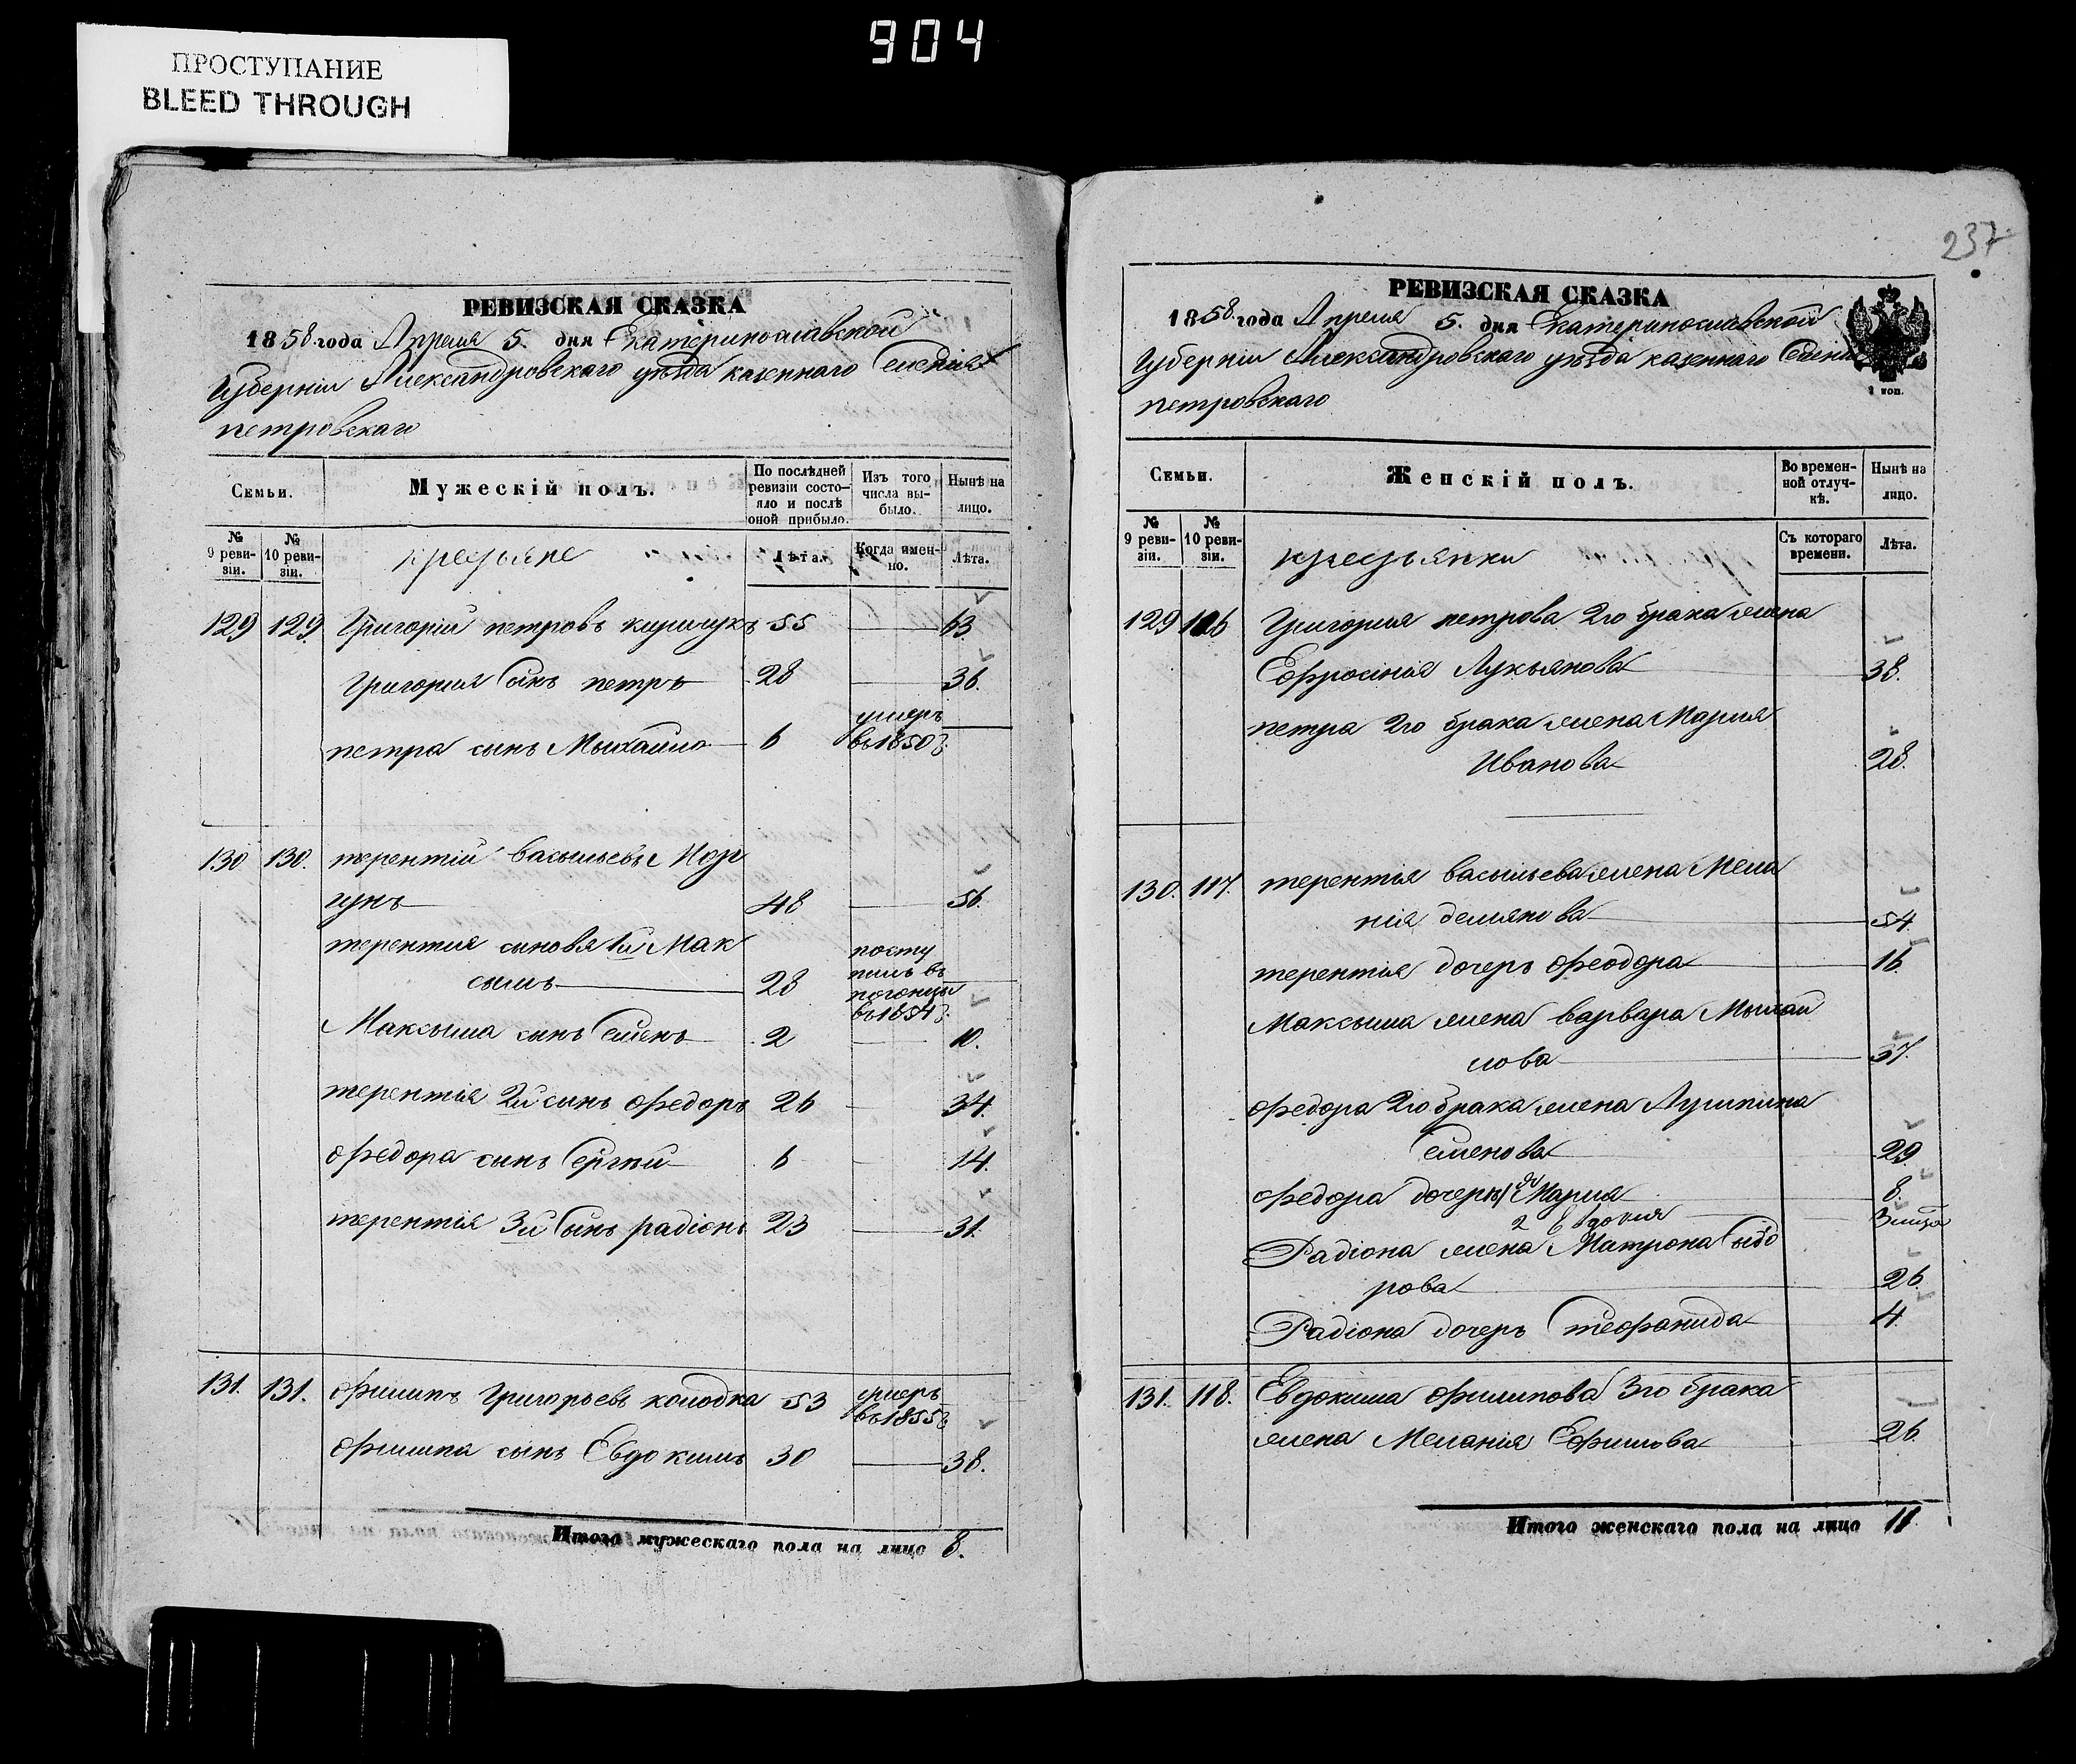 904
ПРОСТУПАНИЕ
BLEED THROUGH
РЕВИЗСКАЯ СКАЗКА
1858 года Апреля 5. дня Екатеринославской
Губерніи Александровскаго уѣзда казеннаго Селенія
петровскаго
Семьи.
Мужескій полъ.
По послѣдней ревизіи состояло и послѣ оной прибыло.
Изъ того числа выбыло.
Нынѣ на лицо.
№ 9 ревизіи.
№ 10 ревизіи.
крестьяне
Лѣта.
Когда именно.
Лѣта.
129 129 Григорій петровъ 55 63
Григорія Сынъ петръ 28 36.
петра сынъ Мыхайло 6 умеръ въ 1850
130 130. терентій васыльевъ
48 56.
терентія сыновя 1й Мак
сымъ 28 поступилъ въ погонцы въ 1854
Максыма сынъ Семенъ 2 10.
терентія 2й сынъ Федоръ 26 34.
Федора сынъ Сергѣй 6 14.
терентія 3й Сынъ радіонъ 23 31.
131. 131. Филипъ Григорьевъ колодка 53 умеръ въ 1855
Филипа сынъ Евдокимъ 30 38.
Итого мужескаго пола на лицо 8.
237
РЕВИЗСКАЯ СКАЗКА
1858 года Апреля 5. дня Екатеринославской
Губерніи Александровскаго уѣзда казеннаго Селенія
петровскаго
Семьи.
Женскій полъ.
Во временной отлучкѣ.
Нынѣ на лицо.
№ 9 ревизіи.
№ 10 ревизіи.
крестьянки
Съ котораго времени.
Лѣта.
129 Григорія петрова 2го брака жена
Ефросинія Лукьянова 38.
петра 2го брака жена Мария
Иванова 28.
130. 117. терентія васыльева жена Мела
нія демянова 54
терентія дочерь Феодора 16
Максыма жена варвара Мыхай
лова 37.
Федора 2го брака жена
Семенова 29
Федора дочеры 1я Мария 8.
2 Евдокия 3 мѣсяца
Радіона жена Матрона Сыдо
рова 26
Радіона дочерь теофанида 4
131. 118. Евдокима Филипова 3го брака
жена Меланія Ефимова 26
Итого женскаго пола на лицо 11